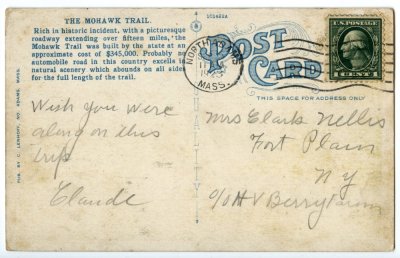 THE MOHAWK TRAIL
Rich in historic incident, with a picturesque
roadway extending over fifteen miles, the
Mohawk Trail was built by the state at an
approximate cost of $345,000. Probably no
automobile road in this country excels in
natural scenery which abounds on all sides
for the full length of the trail.
POST
CARD
THIS SPACE FOR ADDRESS ONLY
NORTH
MASS.
U.S. POSTAGE
1 CENT 1
PUB. BY C. LENHOFF, NO. ADAMS, MASS.
Wish you were
along on this
trip
Claude
Mrs Clark Nellis
Fort Plain
NY
c/o H V Berry